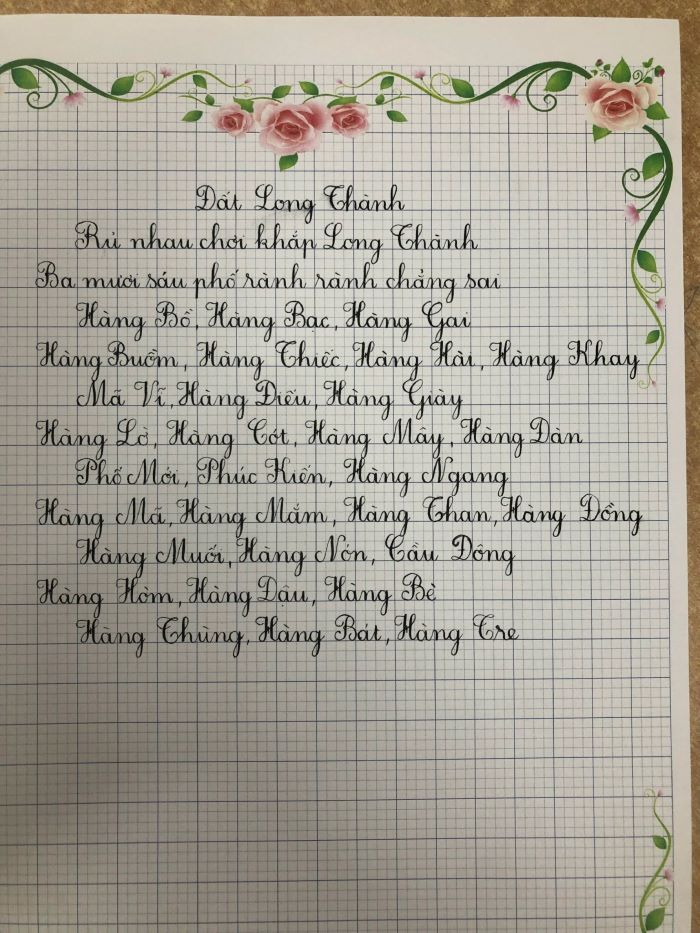 Đất Long Thành
Rủ nhau chơi khắp Long Thành
Ba mươi sáu phố rành rành chẳng sai
Hàng Bồ, Hàng Bạc, Hàng Gai
Hàng Buồm, Hàng Thiếc, Hàng Hài, Hàng Khay
Mã Vĩ, Hàng Điếu, Hàng Giày
Hàng Lờ, Hàng Cót, Hàng Mây, Hàng Đàn
Phố Mới, Phúc Kiến, Hàng Ngang
Hàng Mã, Hàng Mắm, Hàng Than, Hàng Đồng
Hàng Muối, Hàng Nón, Cầu Đông
Hàng Hòm, Hàng Đậu, Hàng Bè
Hàng Thùng, Hàng Bát, Hàng Tre